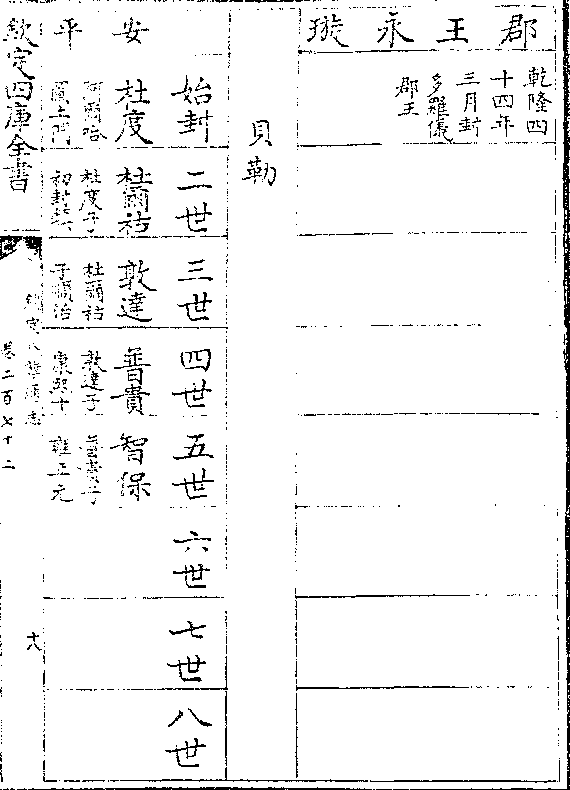 郡王永璇
乾隆四
十四年
三月封
多羅儀
郡王
貝勒
始封
二世
三世
四世
五世
六世
七世
八世
安平
杜度
阿爾哈
圖土門
杜爾祜
杜度子
初封
敦達
杜爾祜
子順治
普貴
敦達子
康熙十
智保
普貴子
雍正元
欽定四庫全書
欽定八旗通志
卷二百七十二
十八